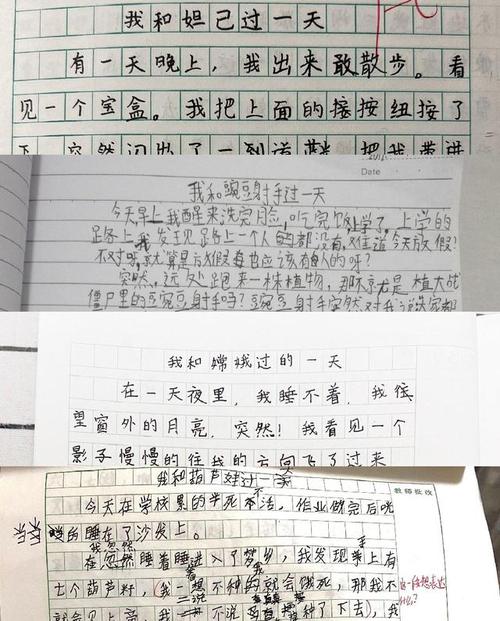 我和妲己过一天
有一天晚上，我出来敢散步。看
见一个宝盒。我把上面的接按纽按了
下，突然闪出了一到道 把我带进
Date
我和豌豆射手过一天
今天早上我醒来洗完 吃完饭 上学了，上学的
路上我发现路上一个人的都没有，难道今天放假？
不对呀，就算是放假 也应该有人的呀？
突然，远处跑来一株植物，那不京尤是植大战
僵尸里的豆豌豆射手吗？豌豆射手突然对我说
我和嫦娥过的一天
在一天夜里，我睡不着，我往
望窗外的月亮，突然！我看见一个
影子慢慢的往我的方向飞了过来
我和葫芦娃过一天
教师批改
今天在学校累的半死不活，作业做完后
的睡在了沙发上。
我忽然
在忽然睡着睡进入了梦乡，我发现手上有
七个葫芦籽，(我一想不种的就会 死，那我不
就会见上帝，我 不说 种了下去)，我
这一段想表达
什么？